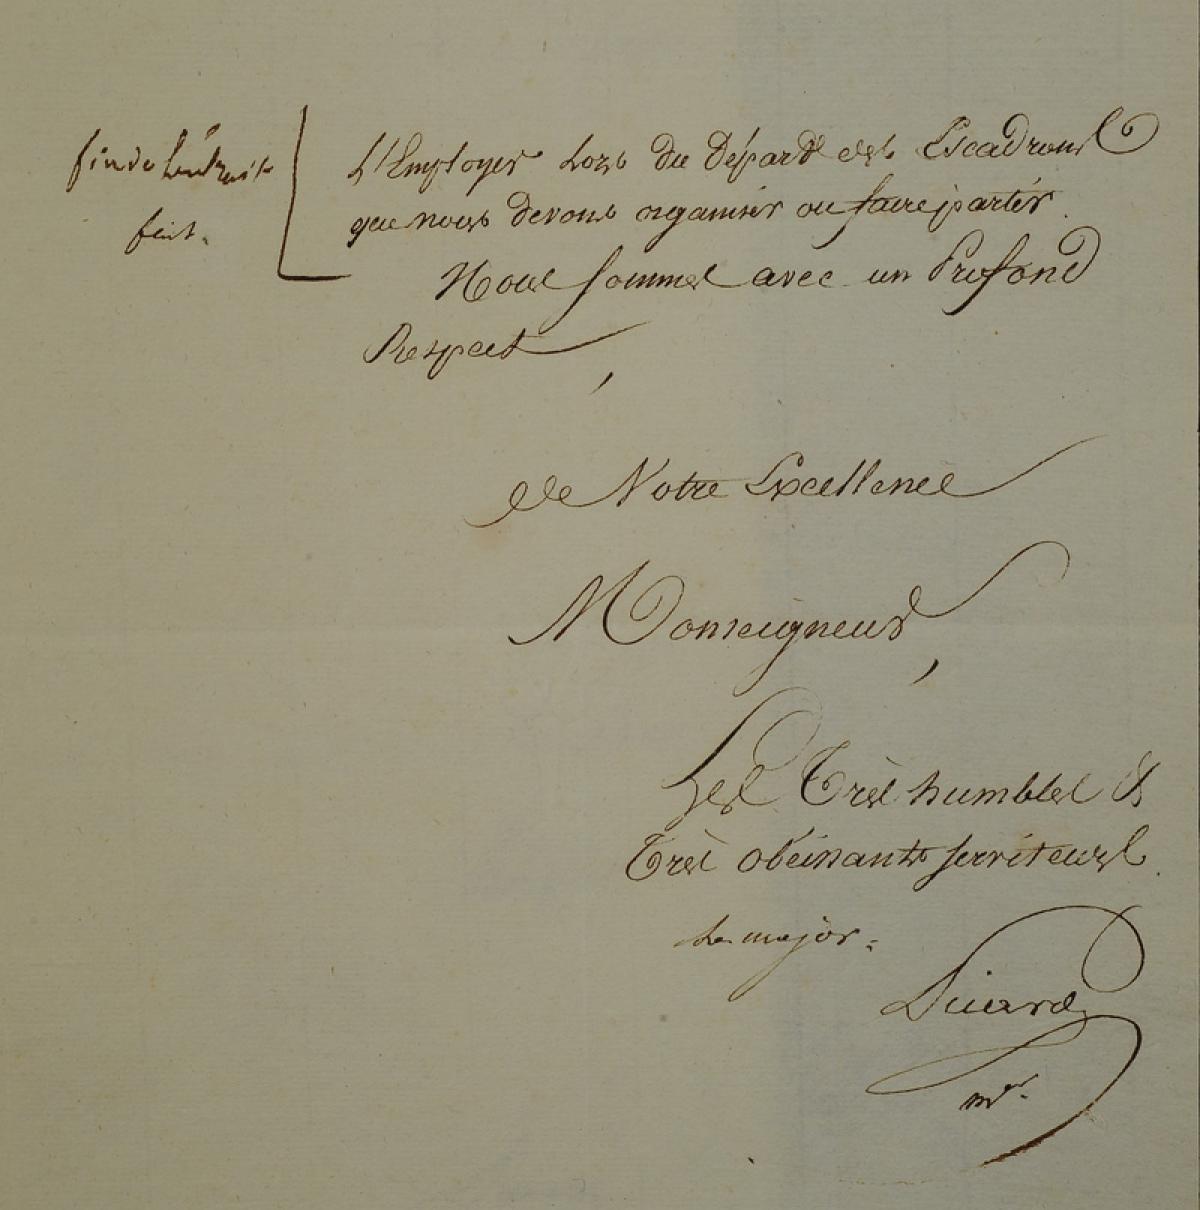 fin de l'extrait
fait.
L'Employer lors du Départ des Escadrons
que nous devons organiser ou faire partir.
Nous sommes avec un Profond
Respect,
de Votre Excellence
Monseigneur,
Les Très humbles &
Très obéissants serviteurs
Le major.